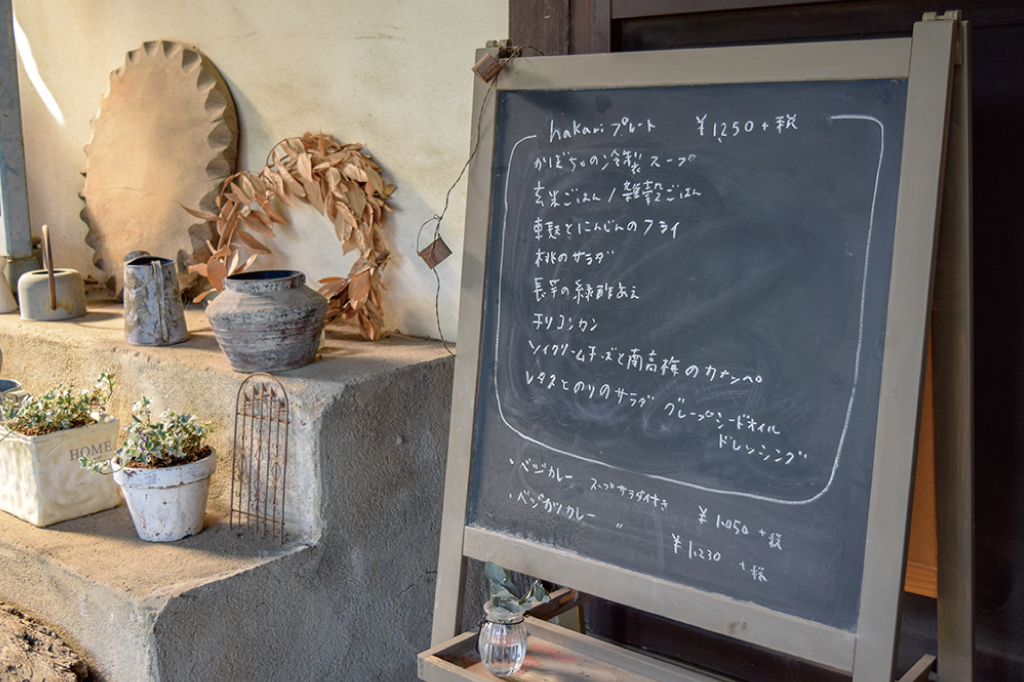 hakari プレート ¥1,250+税
かぼちゃの冷製スープ
玄米ごはん/雑穀ごはん
車麩とにんじんのフライ
桃のサラダ
長芋の緑酢あえ
チリコンカン
ソイクリームチーズと南高梅のカナッペ
レタスとのりのサラダ グレープシードオイル
ドレッシング
・ベジカレー スープサラダ付き ¥1,050+税
・ベジカツカレー 〃 ¥1,230 +税
HOME